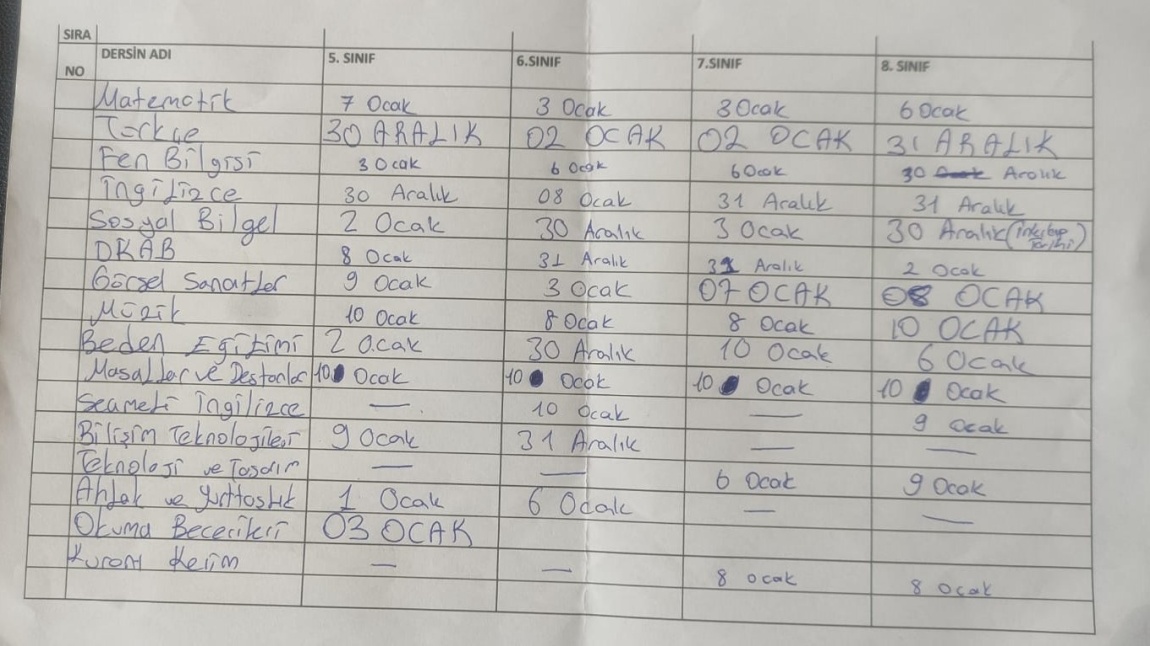 SIRA NO DERSİN ADI 5. SINIF 6.SINIF 7.SINIF 8. SINIF
Matematik 7 Ocak 3 Ocak 3 Ocak 6 Ocak
Türkçe 30 ARALIK 02 OCAK 02 OCAK 31 ARALIK
Fen Bilgisi 3 Ocak 6 Ocak 6 Ocak 30 Aralık
İngilizce 30 Aralık 08 Ocak 31 Aralık 31 Aralık
Sosyal Bilgel 2 Ocak 30 Aralık 3 Ocak 30 Aralık (İnkılap Tarihi)
DKAB 8 Ocak 31 Aralık 31 Aralık 2 Ocak
Görsel Sanatlar 9 Ocak 3 Ocak 07 OCAK 08 OCAK
Müzik 10 Ocak 8 Ocak 8 Ocak 10 OCAK
Beden Eğitimi 2 Ocak 30 Aralık 10 Ocak 6 Ocak
Masallar ve Destanlar 10 Ocak 10 Ocak 10 Ocak 10 Ocak
Seçmeli İngilizce — 10 Ocak — 9 Ocak
Bilişim Teknolojileri 9 Ocak 31 Aralık — —
Teknoloji ve Tasarım — — 6 Ocak 9 Ocak
Ahlak ve Yurttaşlık 1 Ocak 6 Ocak — —
Okuma Becerileri 03 OCAK
Kuranı Kerim — — 8 Ocak 8 Ocak